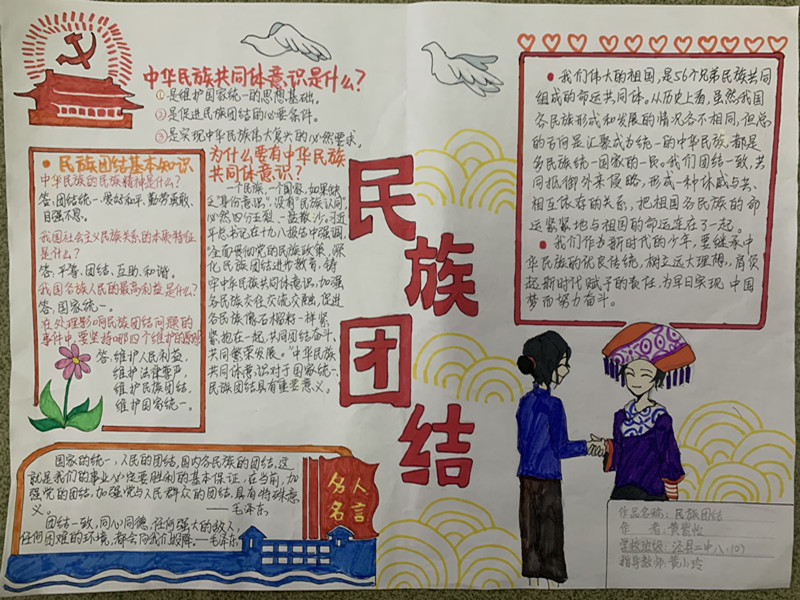 中华民族共同体意识是什么?
①是维护国家统一的思想基础。
②是促进民族团结的必要条件。
③是实现中华民族伟大复兴的必然要求。
民族团结基本知识
中华民族的民族精神是什么?
答:团结统一、爱好和平、勤劳勇敢、
自强不息。
我国社会主义民族关系的本质特征
是什么?
答:平等、团结、互助、和谐。
我国各族人民的最高利益是什么?
答:国家统一。
在处理影响民族团结问题的
事件中,要坚持哪四个维护的原则
答:维护人民利益,
维护法律尊严,
维护民族团结,
维护国家统一。
为什么要有中华民族
共同体意识?
一个民族,一个国家,如果缺
乏"身份意识",没有"民族认同",
必然四分五裂、一盘散沙。习近
平总书记在十九大报告中强调,
"全面贯彻党的民族政策,深
化民族团结进步教育,铸
牢中华民族共同体意识,加强
各民族交往交流交融,促进
各民族像石榴籽一样紧
紧抱在一起,共同团结奋斗、
共同繁荣发展。"中华民族
共同体意识对于国家统一、
民族团结具有重要意义。
民
族
团
结
●我们伟大的祖国,是56个兄弟民族共同
组成的命运共同体。从历史上看,虽然我国
各民族形成和发展的情况各不相同,但总
的方向是汇聚成为统一的中华民族,都是
多民族统一国家的一员。我们团结一致,共
同抵御外来侵略,形成一种休戚与共、
相互依存的关系,把祖国各民族的命
运紧紧地与祖国的命运连在了一起。
●我们作为新时代的少年,要继承中
华民族的优良传统,树立远大理想,肩负
起新时代赋予的责任,为早日实现中国
梦而努力奋斗。
国家的统一,人民的团结,国内各民族的团结,这
就是我们的事业必定要胜利的基本保证。在当前,加
强党的团结,加强党与人民群众的团结,具有特殊意
义。 ——毛泽东
团结一致,同心同德,任何强大的敌人,
任何困难的环境,都会向我们投降。——毛泽东
名人
名言
作品名称:民族团结
作 者:黄紫怡
学校班级:泾县二中八.(0)
指导教师:黄小玲